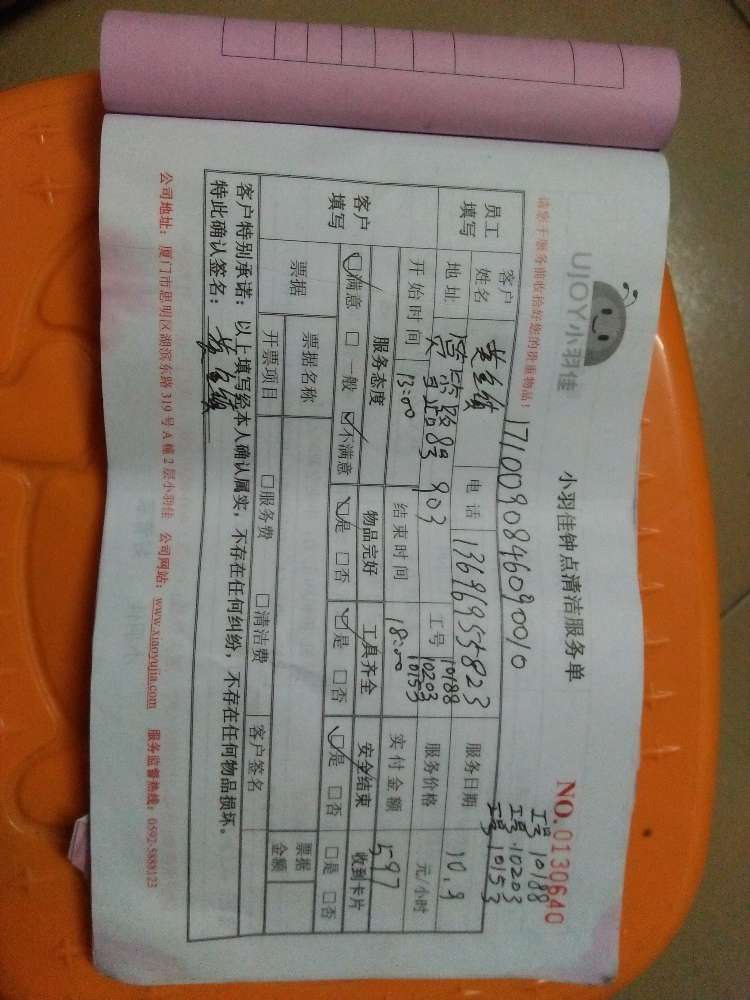 UJOY小羽佳
小羽佳钟点清洁服务单
NO.0130640
请您于服务前收拾好您的贵重物品！
1710090846090010
工号 10188
工号 10203
工号 10153
员工填写
客户姓名
电话 13696955823
服务日期 10.9
地址 83号 903
工号 10188 10203 10153
服务价格 元/小时
开始时间 13:00
结束时间 18:00
实付金额 597
客户填写
服务态度 物品完好 工具齐全 安全结束 收到卡片
☑满意 □一般 ☑不满意 ☑是 □否 ☑是 □否 ☑是 □否 □是 □否
票据
票据名称
票据金额
开票项目 □服务费 □清洁费 客户签名
客户特别承诺：以上填写经本人确认属实，不存在任何纠纷，不存在任何物品损坏。
特此确认签名：
公司地址：厦门市思明区湖滨东路 319 号 A 幢 2 层小羽佳 公司网站：www.xiaoyujia.com 服务监督热线：0592-5888123